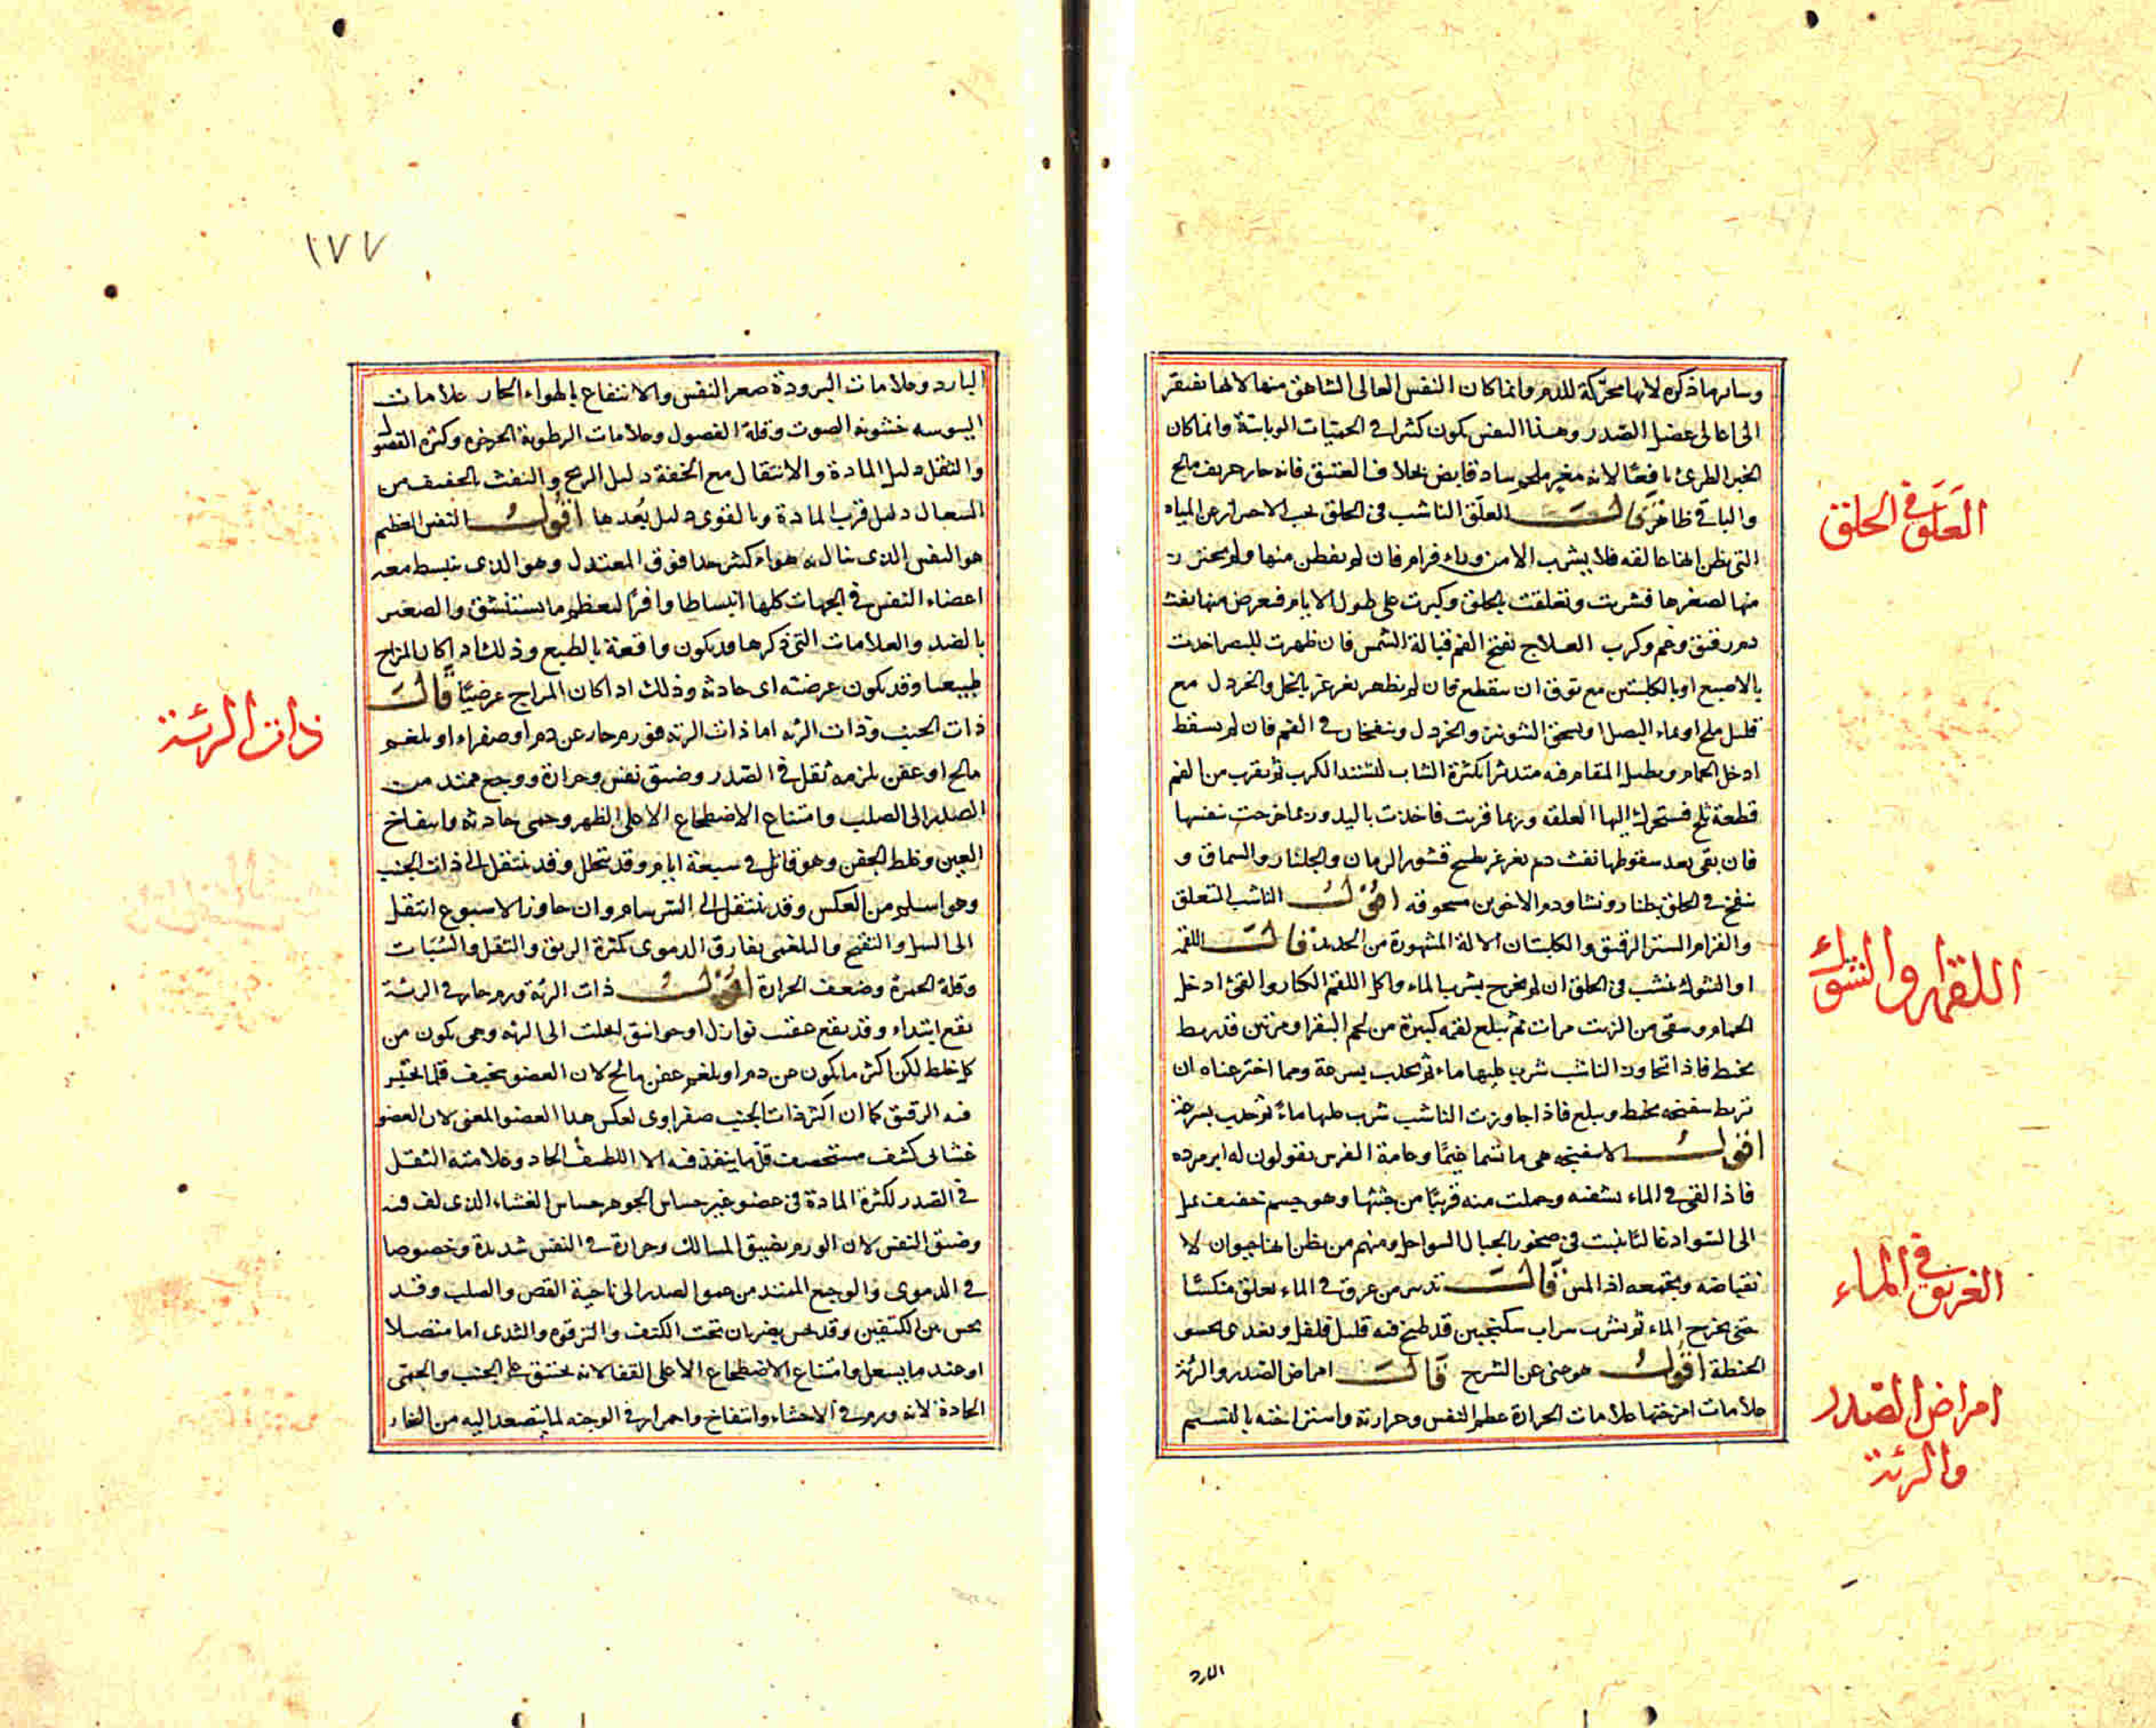 وسائر ما ذكره لانها محركة للدم وانما كان النفس العالى الشاهق منها لانها تفتقر
الى اعالى عضل الصدر وهذا النفس يكون كثيرا فى الحميات الوبائية وانما كان
الخبز الطرى نافعا لانه مغر ملحم ساد قابض بخلاف العتيق فانه حار حريف مالح
والباقى ظاهر قالت العلق الناشب فى الحلق يجب الاحتراز عن المياه
التى يظن انها عالقه فلا يشرب الا من وراء فرام فان لم يفطن منها ولم يحترز
منها لصغرها فشربت وتعلقت بالحلق وكبرت على طول الايام فيعرض منها نفث
دم رقيق وغم وكرب العلاج يفتح الفم قبالة الشمس فان ظهرت للبصر اخذت
بالاصبع او بالكلبتين مع توق ان ينقطع فان لم يظهر يغرغر بالخل والخردل مع
قليل ملح او بماء البصل او يسحق الشونيز والخردل وينفخان فى الفم فان لم يسقط
ادخل الحمام ويطيل المقام فيه متدثرا بكثرة الثياب ليشتد الكرب ثم يقرب من الفم
قطعة ثلج فيتحرك اليها العلقه وربما قربت فاخذت باليد وربما خرجت بنفسها
فان بقى بعد سقوطها نفث دم يغرغر بطبيخ قشور الرمان والجلنار والسماق و
ينفخ فى الحلق جلنار ونشا ودم الاخوين مسحوقه اقول الناشب المتعلق
والفرام الستر الرقيق والكلبتان الالة المشهورة من الحديد قالت اللقمه
او الشوك ينشب فى الحلق ان لم يخرج بشرب الماء واكل اللقم الكبار والقئ ادخل
الحمام وسقى من الزيت مرات ثم يبلع لقمه كبيرة من لحم البقر او من تين قد ربط
بخيط فاذا تجاوز الناشب شرب عليها ماء ثم يجذب بسرعة ومما اخترعناه ان
تربط سفنجه بخيط ويبلع فاذا جاوزت الناشب شرب عليها ماء ثم يجذب بسرعة
اقول الاسفنجه هى ما تسما غيما وعامة الفرس يقولون له ابر مرده
فاذا القى فى الماء نشفه وحملت منه قريبا من جثتها وهو جسم خفيف يميل
الى السواد غالبا ينبت فى صخور الجبال السواحل ومنهم من يظن انها حيوان لا
نقباضه وتجمعه اذا لمس قالت تدبير من غرق فى الماء يعلق منكسا
حتى يخرج الماء ثم يشرب سراب سكنجبين قد طبخ فيه قليل فلفل ويغذى بحسو
الحنطة اقول هو غنى عن الشرح قالت امراض الصدر والرئة
علامات امزجتها علامات الحرارة عظم النفس وحرارته واستراحته بالنسيم
العلق فى الحلق
اللقمة والشوك
الغريق فى الماء
امراض الصدر
والرئة
البارد
١٧٧
البارد وعلامات البرودة صغر النفس والانتفاع بالهواء الحار علامات
اليبوسه خشونة الصوت وقلة الفضول وعلامات الرطوبة الخرخره وكثرة الفضول
والثقل دليل المادة والانتقال مع الخفة دليل الريح والنفث بالخفيف من
السعال دليل قرب المادة وبالقوى دليل بعدها اقول النفس العظيم
هو النفس الذى ينال به هواء كثير جدا فوق المعتدل وهو الذى ينبسط معه
اعضاء النفس فى الجهات كلها انبساطا وافرا لعظم ما يستنشق والصغير
بالضد والعلامات التى ذكرها قد يكون واقعة بالطبع وذلك اذا كان المزاج
طبيعيا وقد يكون عرضته اى حادثه وذلك اذا كان المزاج عرضيا قالت
ذات الجنب وذات الرئه اما ذات الرئه فورم حار عن دم او صفراء او بلغم
مالح او عفن يلزمه ثقل فى الصدر وضيق نفس وحرارة ووجع ممتد من
الصدر الى الصلب وامتناع الاضطجاع الا على الظهر وحمى حادثه وانتفاخ
العين وغلظ الجفن وهو قاتل فى سبعة ايام وقد يتحلل وقد ينتقل الى ذات الجنب
وهو اسلم من العكس وقد ينتقل الى السرسام وان جاوز الاسبوع انتقل
الى السل والتقيح والبلغمى يفارق الدموى بكثرة الريق والثقل والسبات
وقلة الحمرة وضعف الحرارة اقول ذات الرئه ورم حار فى الرئة
يقع ابتداء وقد يقع عقيب نوازل او خوانيق انحلت الى الرئه وهى يكون من
كل خلط لكن اكثر ما يكون عن دم او بلغم عفن مالح لان العضو سخيف قلما يحتبس
فيه الرقيق كما ان اكثر ذات الجنب صفراوى لعكس هذا العضو المعنى لان العضو
غشائى كثيف مستحصف قلما ينفذ فيه الا اللطيف الحاد وعلامته الثقل
فى الصدر لكثرة المادة فى عضو غير حساس الجوهر حساس الغشاء الذى لف فيه
وضيق النفس لان الورم يضيق المسالك وحرارة فى النفس شديدة وخصوصا
فى الدموى والوجع الممتد من عمق الصدر الى ناحية القص والصلب وقد
يحس بين الكتفين وقد يحس بضربان تحت الكتف والترقوه والثدى اما متصلا
او عند ما يسعل وامتناع الاضطجاع الا على القفا لانه يختنق على الجنب والحمى
الحادة لانه ورم فى الاحشاء وانتفاخ واحمرار فى الوجنه لما يتصعد اليه من البخار
ذات الرئة